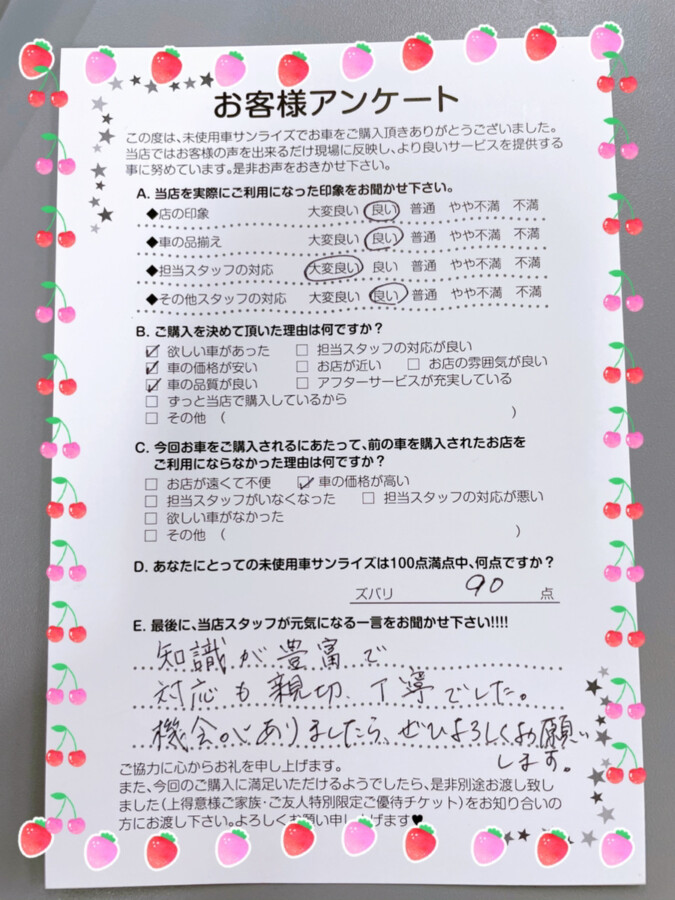 お客様アンケート
この度は、未使用車サンライズでお車をご購入頂きありがとうございました。
当店ではお客様の声を出来るだけ現場に反映し、より良いサービスを提供する
事に努めています。是非お声をおきかせ下さい。
A. 当店を実際にご利用になった印象をお聞かせ下さい。
◆店の印象 大変良い 良い 普通 やや不満 不満
◆車の品揃え 大変良い 良い 普通 やや不満 不満
◆担当スタッフの対応 大変良い 良い 普通 やや不満 不満
◆その他スタッフの対応 大変良い 良い 普通 やや不満 不満
B. ご購入を決めて頂いた理由は何ですか?
☑ 欲しい車があった □ 担当スタッフの対応が良い
☑ 車の価格が安い □ お店が近い □ お店の雰囲気が良い
☑ 車の品質が良い □ アフターサービスが充実している
□ ずっと当店で購入しているから
□ その他 ( )
C. 今回お車をご購入されるにあたって、前の車を購入されたお店を
ご利用にならなかった理由は何ですか?
□ お店が遠くて不便 ☑ 車の価格が高い
□ 担当スタッフがいなくなった □ 担当スタッフの対応が悪い
□ 欲しい車がなかった
□ その他 ( )
D. あなたにとっての未使用車サンライズは100点満点中、何点ですか?
ズバリ 90 点
E. 最後に、当店スタッフが元気になる一言をお聞かせ下さい!!!!
知識が豊富で
対応も親切、丁寧でした。
機会がありましたら、ぜひよろしくお願い
します。
ご協力に心からお礼を申し上げます。
また、今回のご購入に満足いただけるようでしたら、是非別途お渡し致し
ました(上得意様ご家族・ご友人特別限定ご優待チケット)をお知り合いの
方にお渡し下さい。よろしくお願い申し上げます♥